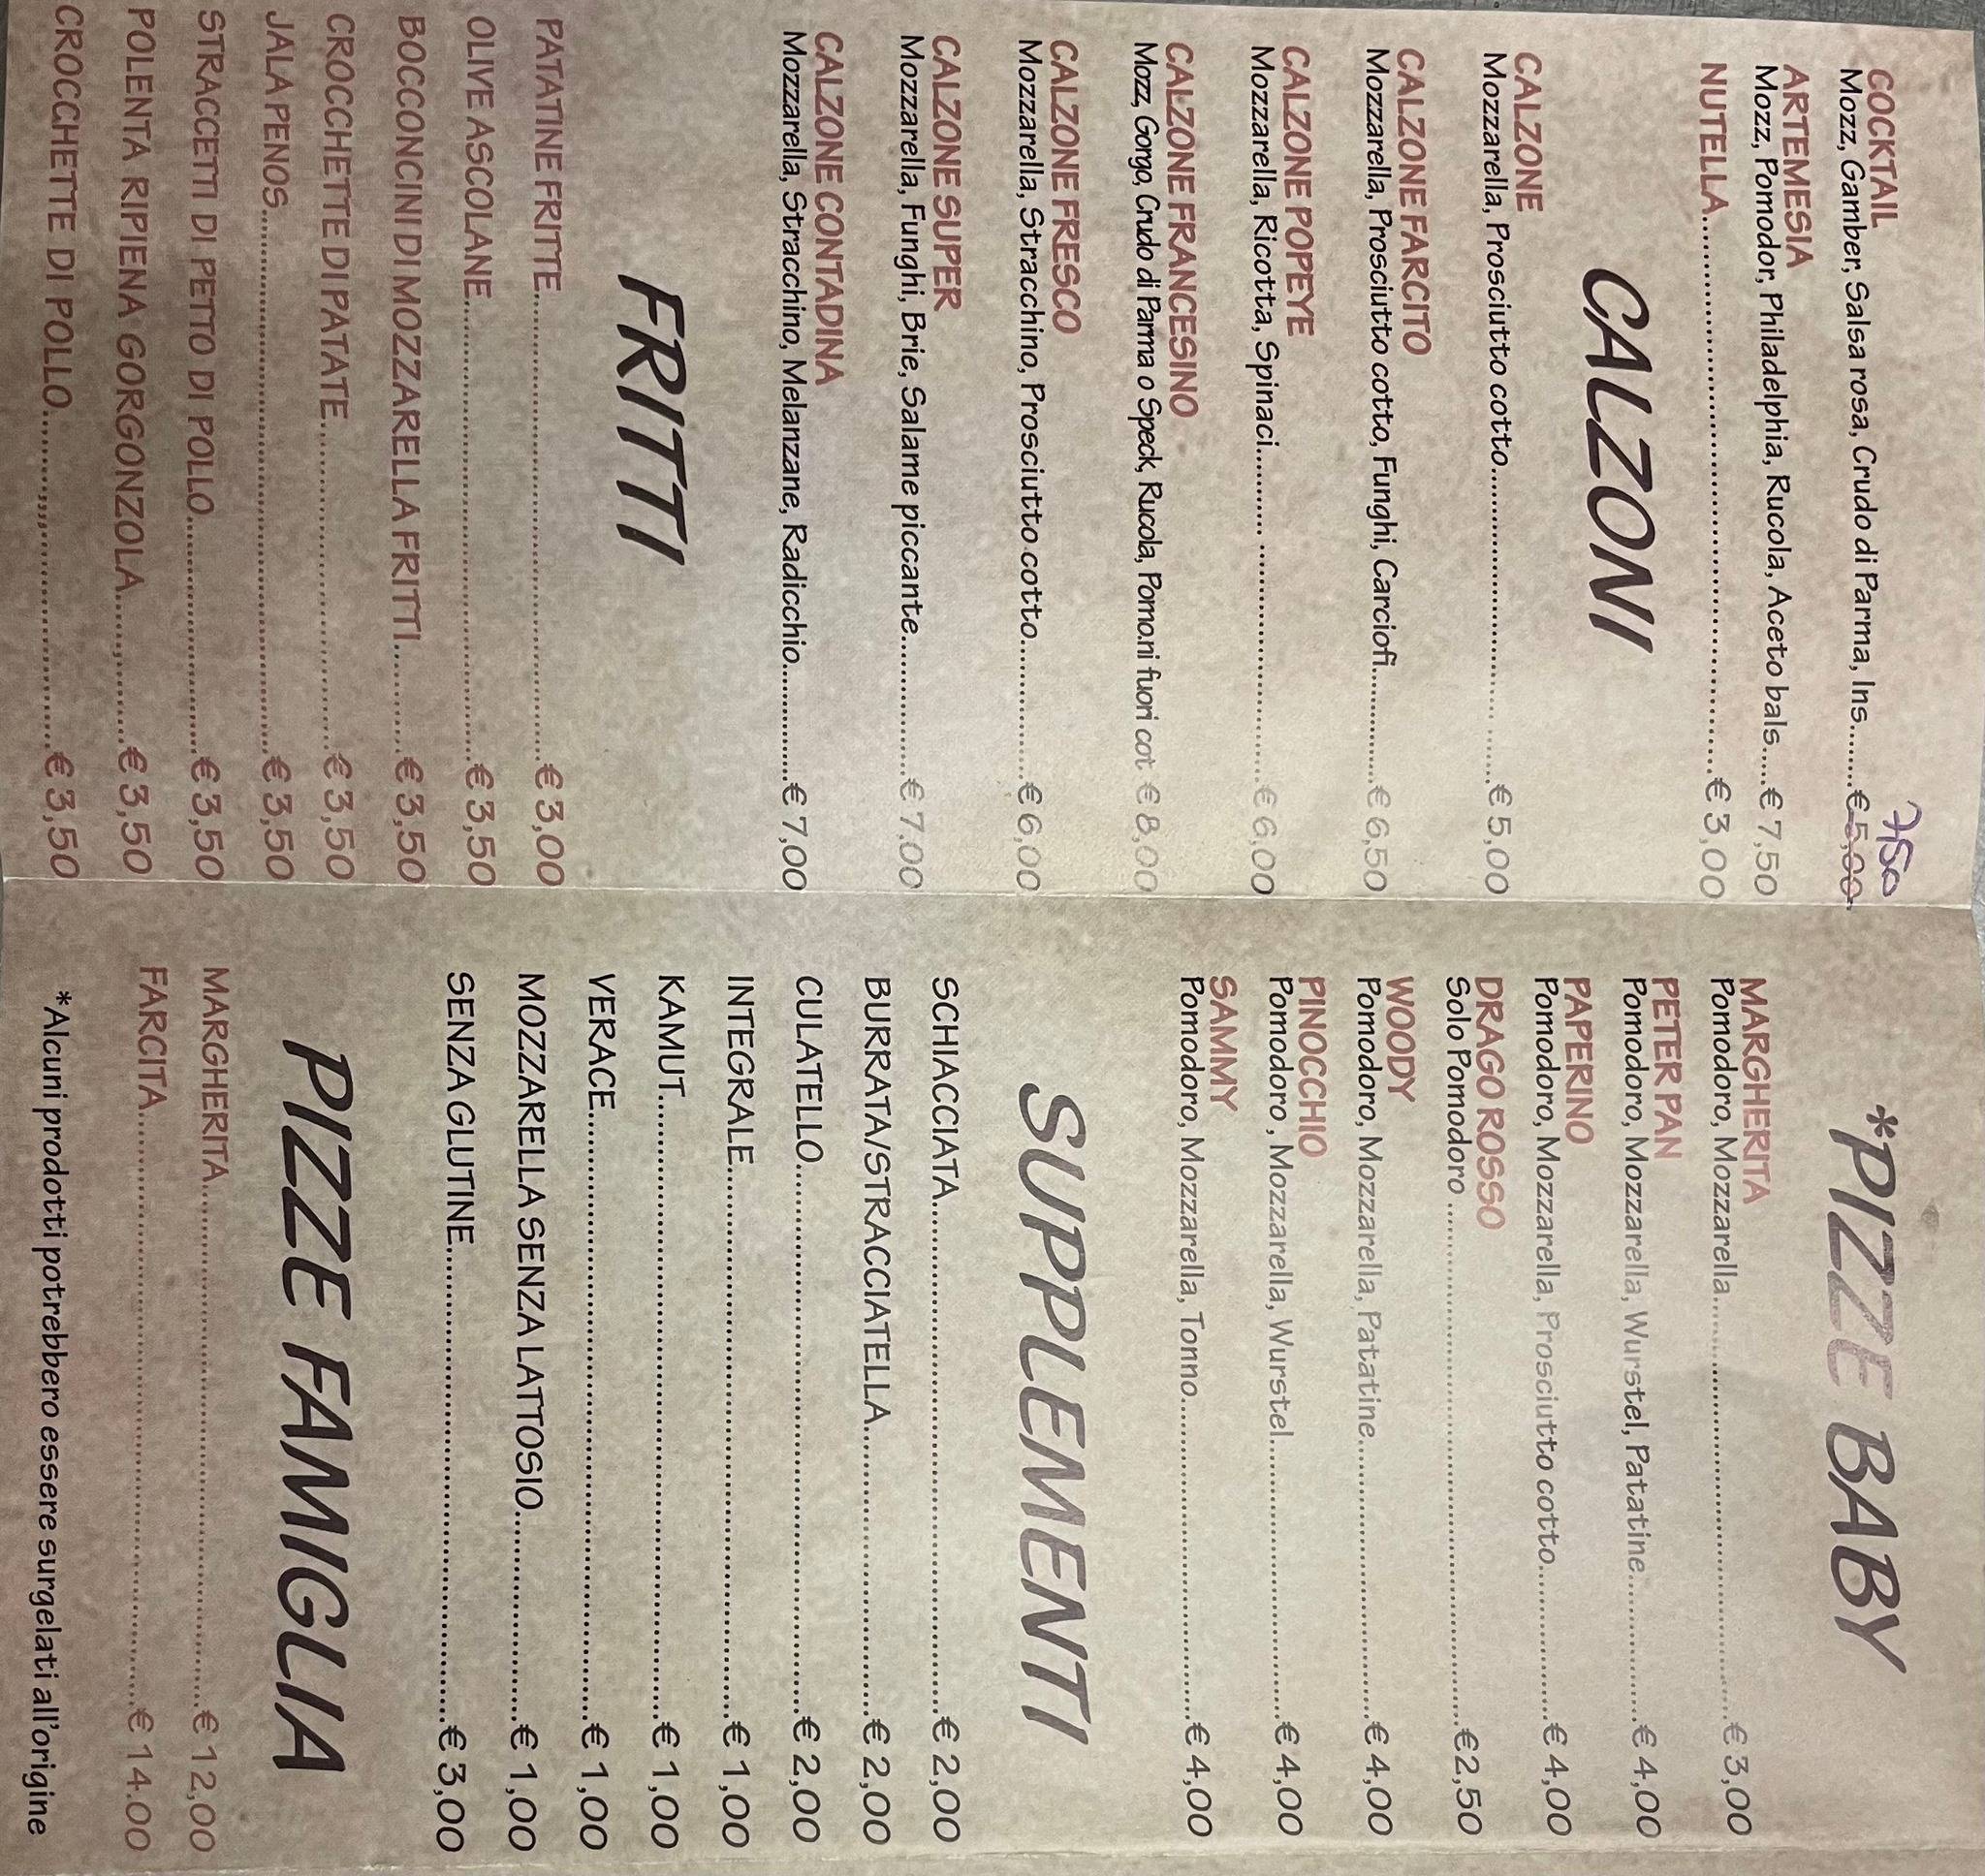 COCKTAIL
7,50
Mozz, Gamber, Salsa rosa, Crudo di Parma, Ins.......€ 5,00
ARTEMESIA
Mozz, Pomodor, Philadelphia, Rucola, Aceto bals.....€ 7,50
NUTELLA......................................................€ 3,00
CALZONI
CALZONE
Mozzarella, Prosciuto cotto..............................€ 5,00
CALZONE FARCITO
Mozzarella, Prosciutto cotto, Funghi, Carciofi............€ 6,50
CALZONE POPEYE
Mozzarella, Ricotta, Spinaci......... ........................€ 6,00
CALZONE FRANCESINO
Mozz, Gorgo, Crudo di Parma o Speck, Rucola, Pomo.ni fuori cot € 8,00
CALZONE FRESCO
Mozzarella, Stracchino, Prosciutto cotto..............€ 6,00
CALZONE SUPER
Mozzarella, Funghi, Brie, Salame piccante..............€ 7.00
CALZONE CONTADINA
Mozzarella, Stracchino, Melanzane, Radicchio............€ 7,00
FRITTI
PATATINE FRITTE.............................................€ 3,00
OLIVE ASCOLANE.............................................€ 3,50
BOCCONCINI DI MOZZARELLA FRITTI...........€ 3,50
CROCCHETTE DI PATATE................................€ 3,50
JALAPENOS......................................................€ 3,50
STRACCETTI DI PETTO DI POLLO.......................€ 3,50
POLENTA RIPIENA GORGONZOLA..............€ 3,50
CROCCHETTE DI POLLO..................................€ 3,50
*PIZZE BABY
MARGHERITA
Pomodoro, Mozzarella..........................................€ 3,00
PETER PAN
Pomodoro, Mozzarella, Wurstel, Patatine..............€ 4,00
PAPERINO
Pomodoro, Mozzarella, Prosciutto cotto...............€ 4,00
DRAGO ROSSO
Solo Pomodoro ......................................................€2,50
WOODY
Pomodoro, Mozzarella, Patatine...........................€ 4,00
PINOCCHIO
Pomodoro , Mozzarella, Wurstel...........................€ 4,00
SAMMY
Pomodoro, Mozzarella, Tonno................................€ 4,00
SUPPLEMENTI
SCHIACCIATA..................................................€ 2,00
BURRATA/STRACCIATELLA............................€ 2,00
CULATELLO.....................................................€ 2,00
INTEGRALE......................................................€ 1,00
KAMUT............................................................€ 1,00
VERACE...........................................................€ 1,00
MOZZARELLA SENZA LATTOSIO....................€ 1,00
SENZA GLUTINE..............................................€ 3,00
PIZZE FAMIGLIA
MARGHERITA...................................................€ 12,00
FARCITA..........................................................€ 14.00
*Alcuni prodotti potrebbero essere surgelati all'origine